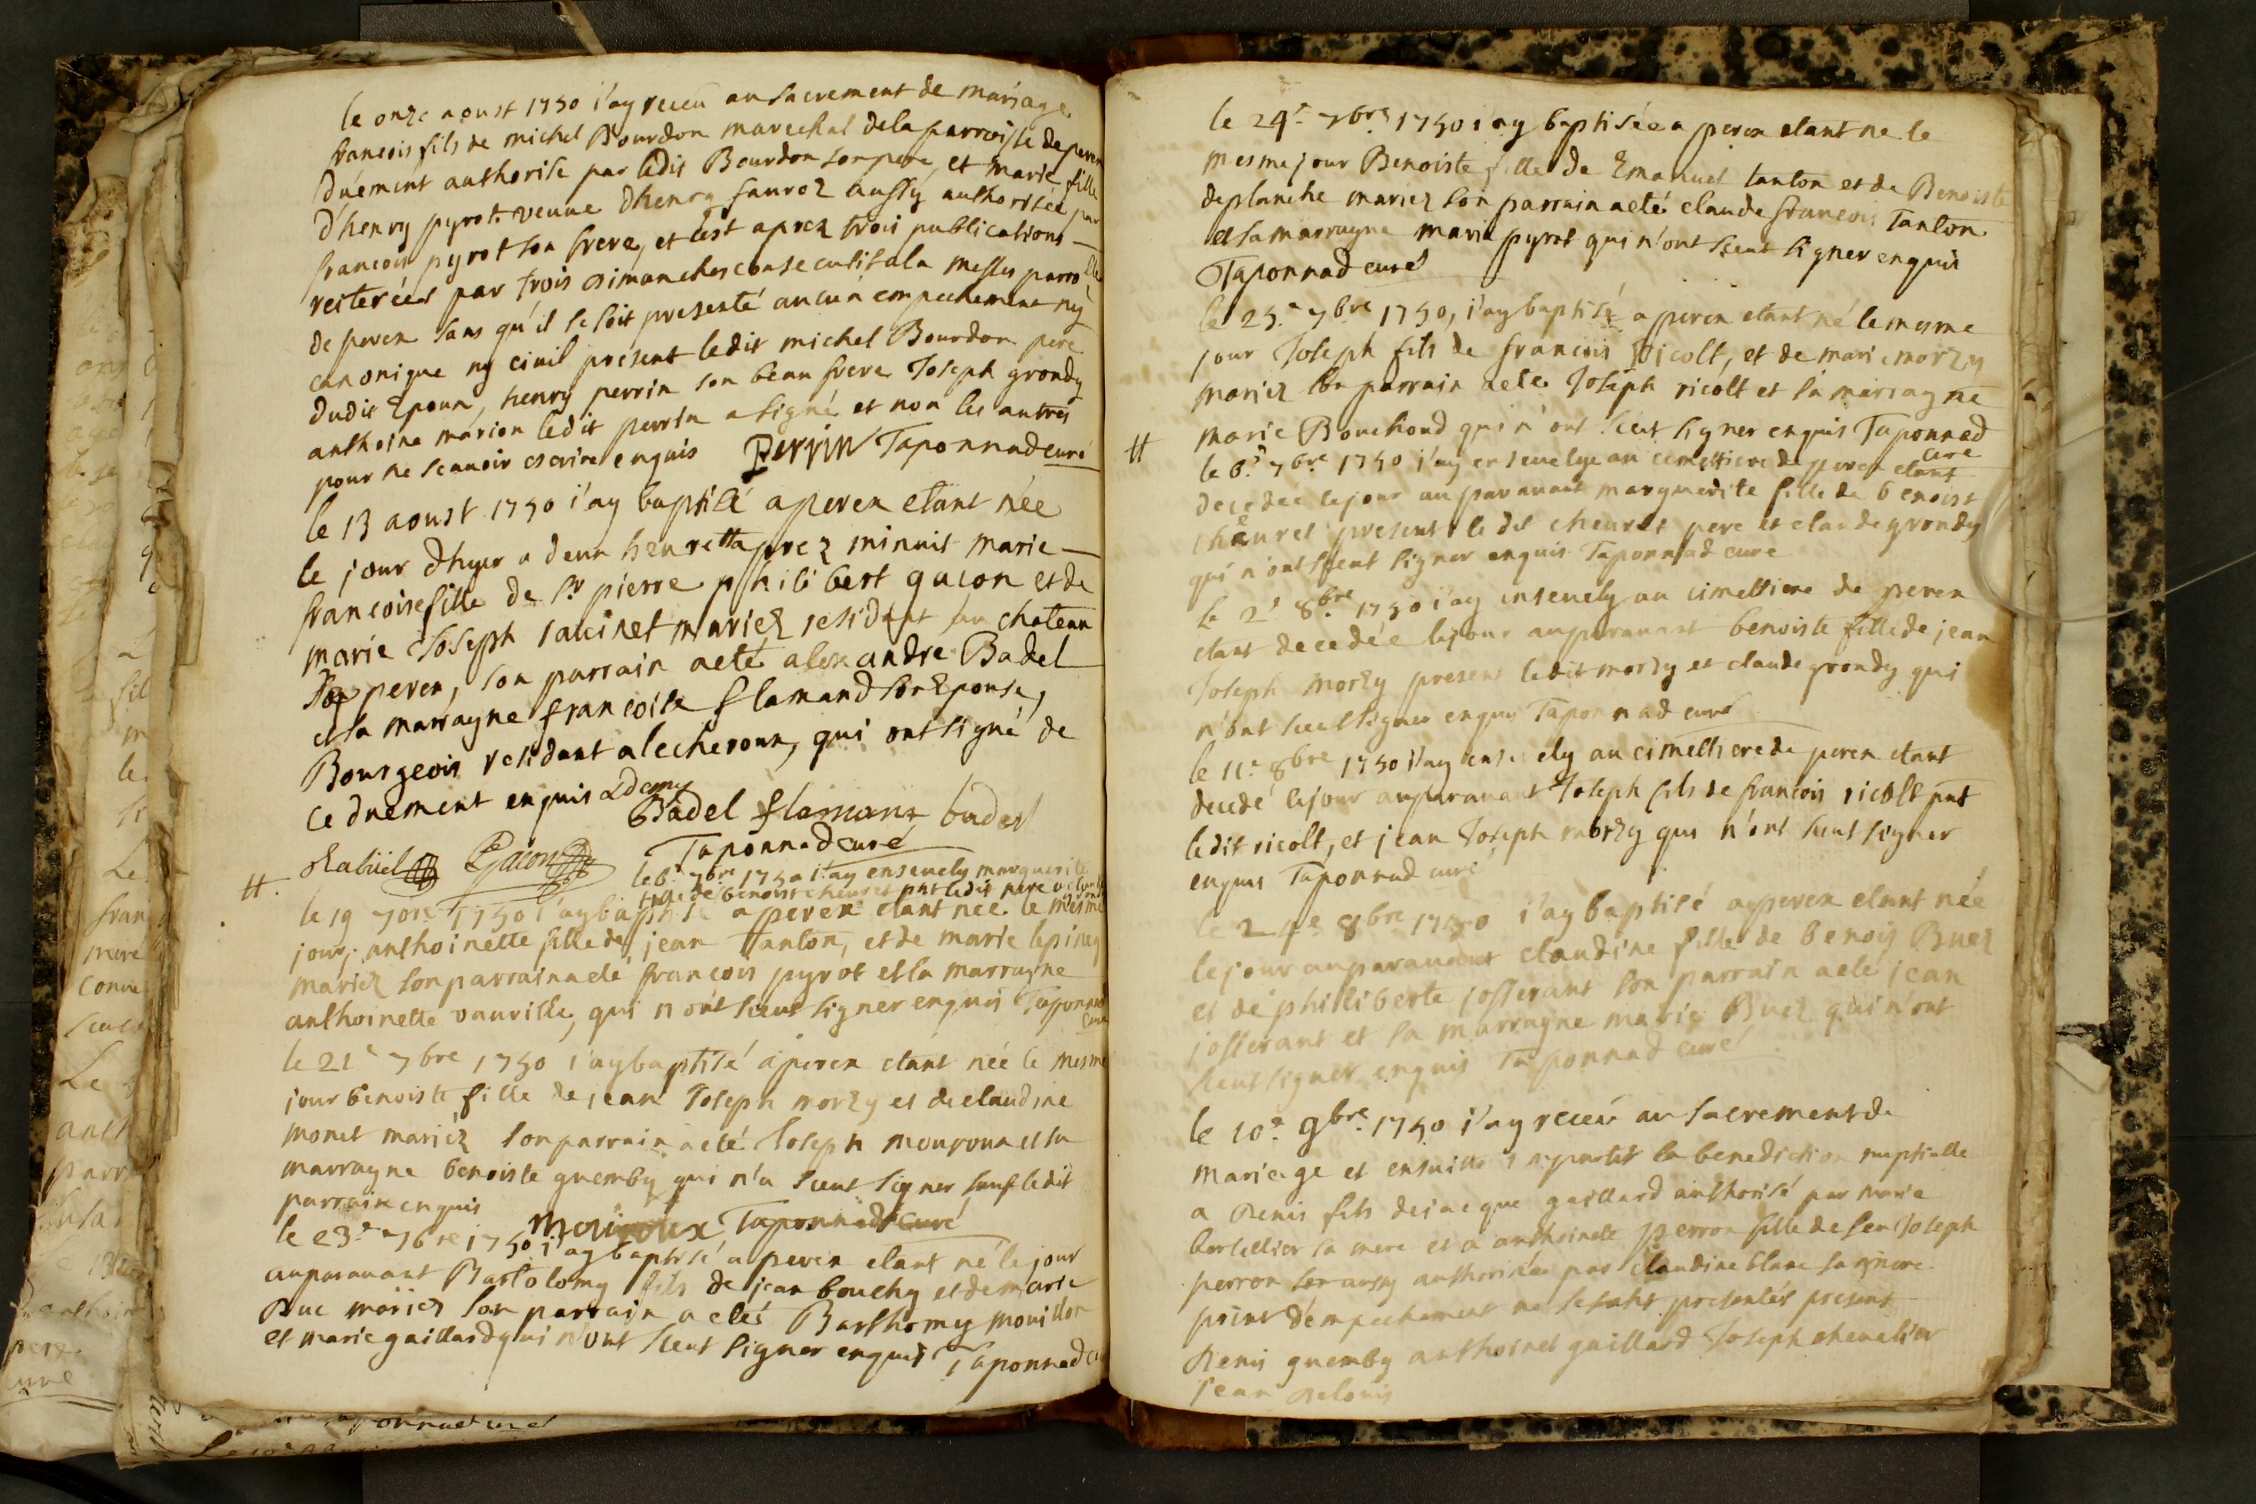 le onze aoust 1750 i'ay receu au sacrement de mariage
francois fils de michel Bourdon marechal dela parroisse de peren
duement authorise par ledit Bourdon son pere, et marie fille
d'henry pyrot veuve dhenry sauroz aussy authorisee par
francois pyrot son frere, et c'est aprez trois publications
reiterées par trois dimanches consecutifs a la messe parro^lle
de peren sans qu'il se soit presenté aucun empechement ny
canonique ny civil present ledit michel Bourdon pere
dudit Epoux, henry perrin son beau frere Joseph grondy
anthoine marion ledit perrin a signé et non les autres
pour ne scavoir escrire enquis Perrin Taponnad curé
le 13 aoust 1750 i'ay baptisé a peren etant née
le jour d'hyer a deux heures aprez minuit marie
francoise fille de Sr pierre philibert gacon et de
marie Joseph mariez residant au chateau
de peren, son parrain a eté alexandre Badel
et sa marrayne francoise flamand son Epouse,
Bourgeois residant a lecheroux, qui ont signé de
ce duement enquis
Badel flamant badel
Rabüel Gacon Taponnad curé
tt. le 6e 7bre 1750 i'ay ensevely marguerite
fille de benoist cheuret pnt ledit pere et
le 19 7bre 1750 i'ay baptisé a peren etant née le mesme
jour anthoinette fille de jean Tanton, et de marie lepiney
mariez son parrain a eté francois pyrot et sa marrayne
anthoinette vauville, qui n'ont sceut signer enquis Taponnad
curé
le 21e 7bre 1750 i'ay baptisé a peren etant née le mesme
jour benoiste fille de jean Joseph morzy et de claudine
monet mariéz son parrain a eté Joseph mouroux et sa
marrayne benoiste guemby qui n'a sceut signer sauf ledit
parrain enquis
mouroux Taponnad curé
le 23e 7bre 1750 i'ay baptisé a peren etant né le jour
auparavant Bartolomy fils de jean bouchy et de marie
Duc mariez son parrain a eté Barthomy mouillon
et marie gaillard qui n'ont sceut signer enquis Taponnad
le 24e 7bre 1750 i'ay baptisée a peren etant ne le
mesme jour Benoiste fille de Emanuel tanton et de Benoiste
deplanche mariez son parrain a eté claude francois Tanton
et sa marrayne marie pyrot qui n'ont sceut signer enquis
Taponnad curé
le 25e 7bre 1750, i'ay baptisé a peren etant né le mesme
jour Joseph fils de francois ricolt, et de marie morzy
mariez son parrain a eté Joseph ricolt et sa marrayne
marie Bouchoud qui n'ont sceut signer enquis Taponnad
curé
tt le 6e 7bre 1750 i'ay ensevelye au cimettiere de peren etant
decedée le jour auparavant marguerite fille de benoist
cheuret present le dit cheuret pere et claude grondy
qui n'ont sceut signer enquis Taponnad curé
le 2e 8bre 1750 i'ay ensevely au cimettiere de peren
etant decedée le jour auparavant benoiste fille de jean
Joseph morzy present ledit morzy et claude grondy qui
n'ont sceut signer enquis Taponnad curé
le 11e 8bre 1750 i'ay ensevely au cimettiere de peren etant
decedé le jour auparavant Joseph fils de francois ricolt pnt
ledit ricolt, et jean Joseph morzy qui n'ont sceut signer
enquis Taponnad curé
le 24e 8bre 1750 i'ay baptisé a peren etant née
le jour auparavant claudine fille de benois Buez
et de philliberte josserant son parrain a eté jean
josserant et sa marrayne marie Buez qui n'ont
sceut signer enquis Taponnad curé
le 10e 9bre 1750 i'ay receu au sacrement de
mariage et ensuitte departit la benediction nuptialle
a Denis fils de jacque gaillard authorisé par marie
sa mere et a anthoinette perron fille de feu Joseph
perron aussy authorisée par claudine blanc sa mere
point d'empechement ne sestant presentés present
Denis guemby anthoinet gaillard Joseph chevalier
jean Delouis